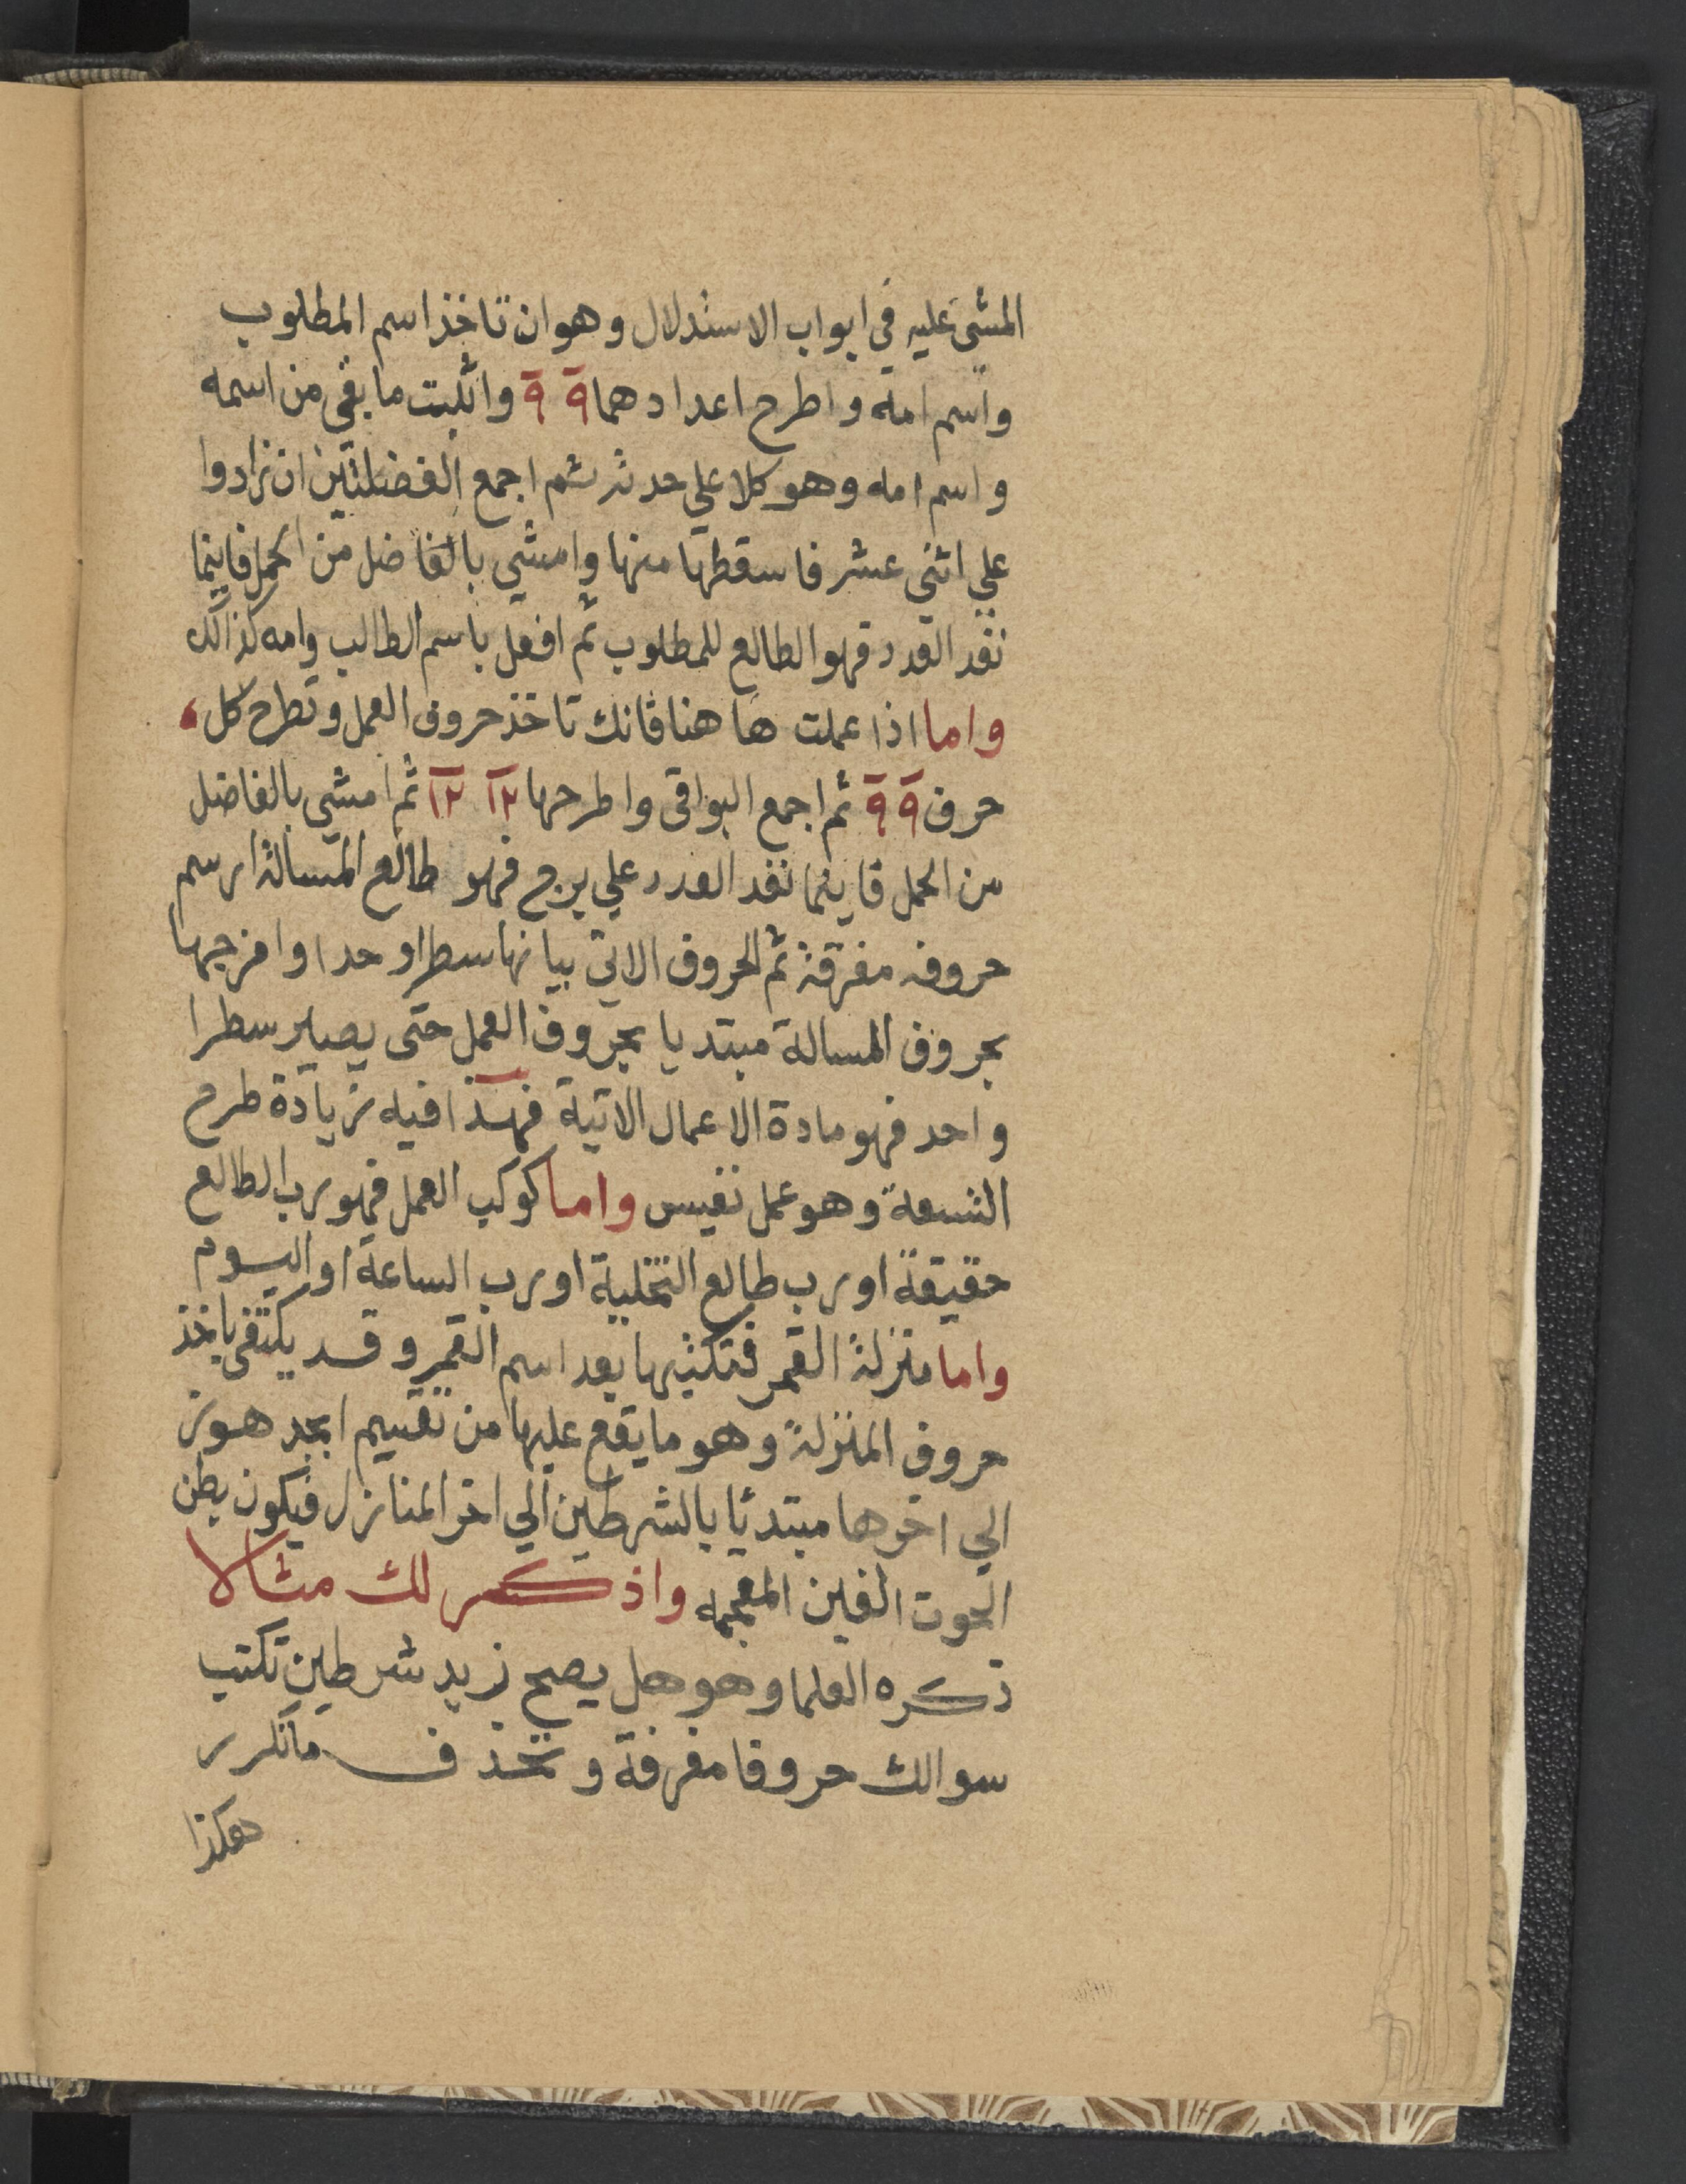 المشى عليه في ابواب الاستدلال وهو ان تاخذ اسم المطلوب
واسم امه واطرح اعدادهما ٩ ٩ واثبت ما بقي من اسمه
واسم امه وهو كلا علي حدته ثم اجمع الفضلتين ان زادوا
علي اثني عشر فاسقطها منها وامشي بالفاضل من الحمل فاينما
نفد العدد فهو الطالع للمطلوب ثم افعل باسم الطالب وامه كذالك
واما اذا عملت ها هنا فانك تاخذ حروف العمل وتطرح كل
حرف ٩ ٩ ثم اجمع البواقى واطرحها ١٢ ١٢ ثم امشي بالفاضل
من الحمل فاينما نفد العدد علي برج فهو طالع المسالة ارسم
حروفه مفرقة ثم الحروف الاتي بيانها سطرا وحدا وامزجها
بحروف المسالة مبتديا بحروف العمل حتى يصير سطرا
واحد فهو مادة الاعمال الاتية فهذا فيه زيادة طرح
التسعة وهو عمل نفيس واما كوكب العمل فهو رب الطالع
حقيقة او رب طالع التخلية او رب الساعة او اليوم
واما منزلة القمر فتكتبها بعد اسم القمر وقد يكتفى باخذ
حروف المنزلة وهو ما يقع عليها من تقسيم ابجد هوز
الي اخرها مبتدئا بالشرطين الي اخر المنازل فيكون بطن
الحوت الغين المعجمه واذكر لك مثالا
ذكره العلما وهو هل يصح زيد شرطين تكتب
سوالك حروفا مفرقة وتحذف ماتكرر
هكذا